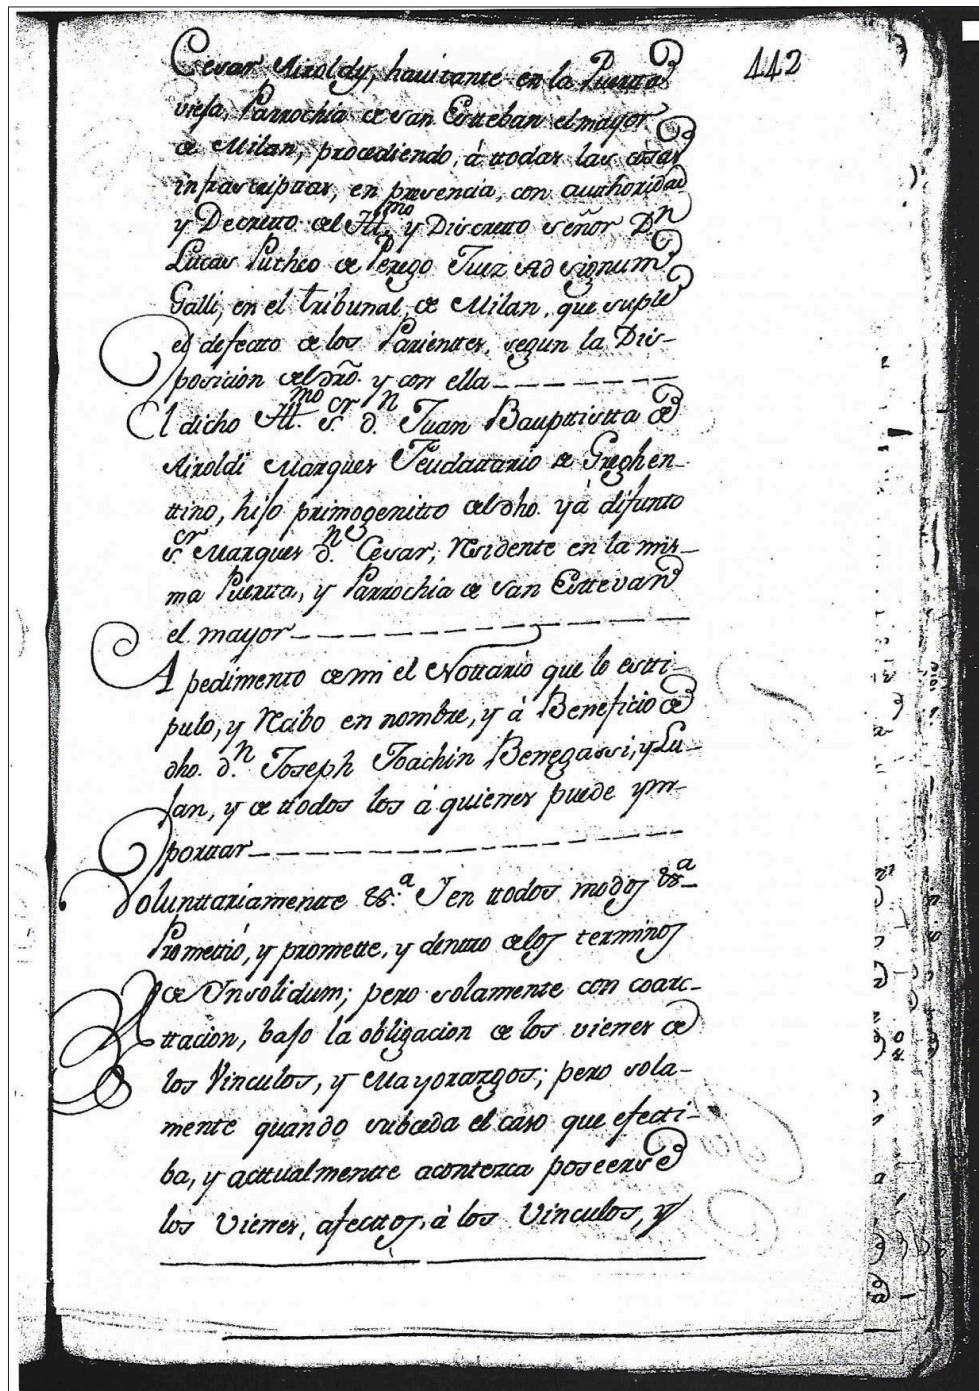 442
Cesar Airoldy, havitante en la Puertta
viefa, Parrochia de san Estteban el mayor
de Milan, procediendo, à ttodas las cosas
infrascripttas, en presencia, con authoridad
y Decretto del Ill.mo y Discretto señor D.n
Lucas Putheo de Perego Juez Ad signum
Galli, en el tribunal, de Milan, que suple
el defectto de los Parienttes, segun la Dis-
posicion del dro. y con ella
El dicho Ill.mo s.or d.n Juan Baupttistta de
Airoldi Marques Feudattario de Greghen-
ttino, hijo primogenitto del dho. yà difunto
s.or Marques d.n Cesar, Residente en la mis-
ma Puertta, y Parrochia de san Esttevan
el mayor
A pedimento de mi el Nottario que lo estti-
pulo, y Recibo en nombre, y à Beneficio de
dho. d.n Joseph Joachin Benegassi, y Lu-
jan, y de ttodos los à quienes puede ym-
porttar
Volunttariamentte &.a J en ttodos modos &.a
Promettió, y promette, y dentro de los terminos
de Insolidum; pero solamente con coarc-
ttacion, bajo la obligacion de los vienes de
los Vinculos, y Mayorazgos; pero sola-
mente quando subceda el caso que efecti-
ba, y acttualmentte acontezca poseerse
los Vienes, afecttos, à los Vinculos, y